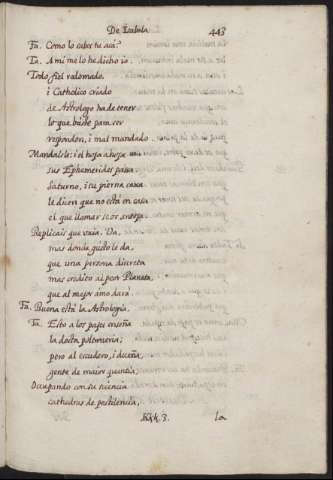 De Isabela
443
Fa. Como lo sabes tu acá?
Ta. A mi me lo he dicho io.
Todo fiel
i Catholico criado
de Astrologo ha de tener
lo que baste para ser
respondon, i mal mandado.
Mandalsle: i el hoja
sus Ephemerides pasa.
Saturno, i tu pierna casa
le dicen que no está en casa
el que llamar
Replicais que vaia. Va,
mas donde gusto le da,
que una persona discreta
mas credito a un Planeta,
que al mejor amo dará
Fa. Buena está la Astrologia.
Ta. Esto a los pajes enseña
la docta poltroneria;
pero al escudero, i dueña,
gente de maior quantia;
Ocupando con su ciencia
cathedras de pestilencia,
Kkk 3.
la